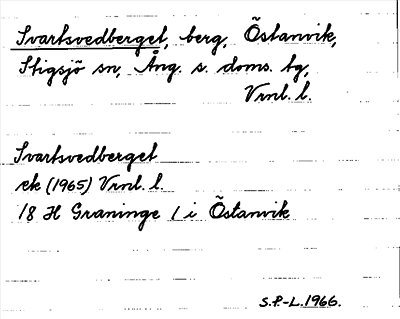 Svartsvedberget, berg, Östanvik,
Stigsjö sn, Ång. s. doms. tg,
Vrnl. l.
Svartsvedberget
ek (1965) Vrnl. l.
18 H Graninge 1 i Östanvik
S.P.-L.1966.